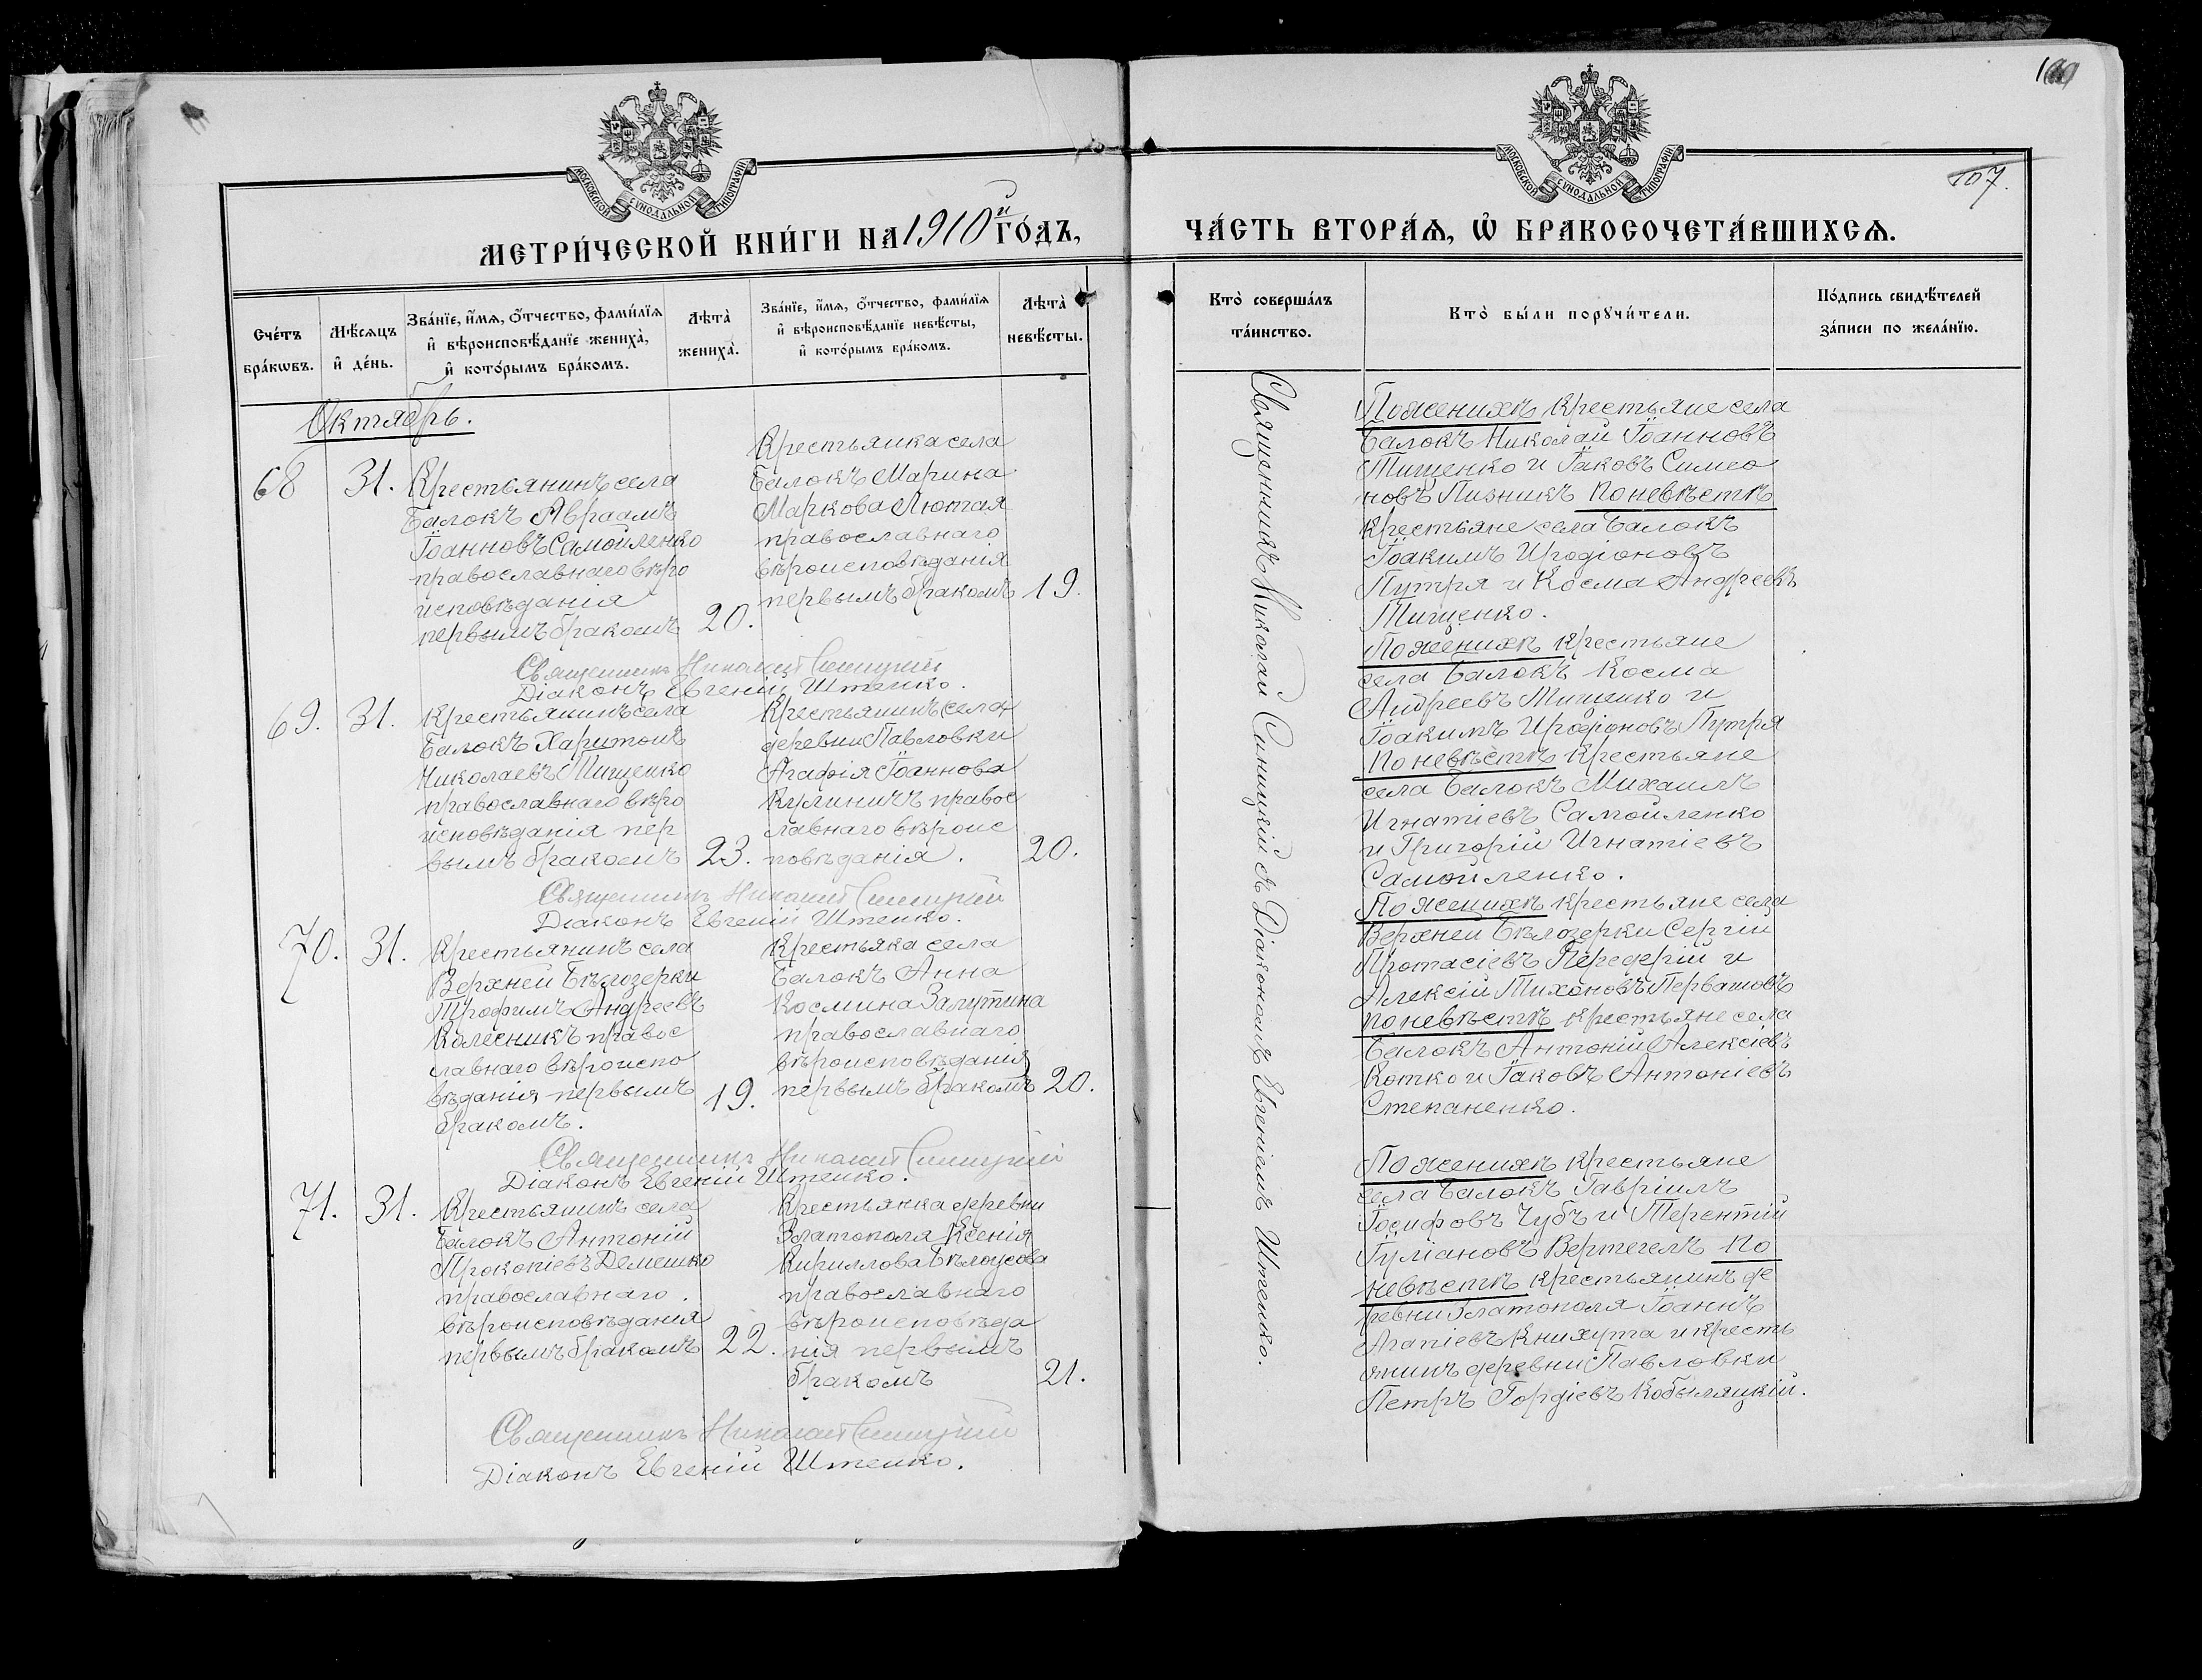 100
107.
МОСКОВСКОЙ СѴНОДАЛЬНОЙ ТИПОГРАФІИ
МОСКОВСКОЙ СѴНОДАЛЬНОЙ ТИПОГРАФІИ
МЕТРИ́ЧЕСКОЙ КНИ́ГИ НА 1910й ГО́ДЪ,
ЧА́СТЬ ВТОРА́Ѧ, Ѡ҆ БРАКОСОЧЕТА́ВШИХСѦ.
Сче́тъ
бра́кѡвъ.
Мѣ́сѧцъ
и҆ де́нь.
Зва́нїе, и҆́мѧ, ѻ҆́тчество, фами́лїѧ
и҆ вѣроисповѣ́данїе жениха̀,
и҆ кото́рымъ бра́комъ.
Лѣта̀
жениха̀.
Зва́нїе, и҆́мѧ, ѻ҆́тчество, фами́лїѧ
и҆ вѣроисповѣ́данїе невѣ́сты,
и҆ кото́рымъ бра́комъ.
Лѣта̀
невѣ́сты.
Кто̀ соверша́лъ
та́инство.
Кто̀ бы́ли порꙋчи́тели.
По́дпись свидѣ́телей
за́писи по жела́нїю.
Октябрь.
68
31.
Крестьянинъ села
Балокъ Авраамъ
Іоанновъ Самойленко
православнаго вѣро
исповѣданія
первымъ бракомъ
20.
Крестьянка села
Балокъ Марина
Маркова Лютая
православнаго
вѣроисповѣданія
первымъ бракомъ
19.
Священникъ Николай Синицкій
Діаконъ Евгеній Штенко.
69.
31.
Крестьянинъ села
Балокъ Харитонъ
Николаевъ Тищенко
православнаго вѣро
исповѣданія пер
вымъ бракомъ
23.
Крестьянинъ села
деревни Павловки
Агафія Іоаннова
Кулиничъ правос
лавнаго вѣроис
повѣданія.
20.
Священникъ Николай Синицкій
Діаконъ Евгеній Штенко.
70.
31.
Крестьянинъ села
Верхней Бѣлозерки
Трофимъ Андреевъ
Колесникъ правос
лавнаго вѣроиспо
вѣданія первымъ
бракомъ.
19.
Крестьяка села
Балокъ Анна
Космина Залутина
православнаго
вѣроисповѣданія
первымъ бракомъ
20.
Священникъ Николай Синицкій
Діаконъ Евгеній Штенко.
71.
31.
Крестьянинъ села
Балокъ Антоній
Прокопіевъ Демешко
православнаго.
вѣроисповѣдания
первымъ бракомъ
22.
Крестьянка деревни
Златополя Ксенія
Кириллова Бѣлоусова
православнаго
вѣроисповѣда
нія первымъ
бракомъ
21.
Священникъ Николай Синицкій
Діаконъ Евгеній Штенко.
Священникъ Николай Синицкій съ Діакономъ Евгеніемъ Штенко.
По женихѣ крестьяне села
Балокъ Николай Іоанновъ
Тищенко и Іаковъ Симео
новъ Пизникъ по невѣстѣ
крестьяне села Балокъ
Іоакимъ Иродіоновъ
Путря и Косма Андреевъ
Тищенко.
По женихѣ крестьяне
села Балокъ Косма
Андреевъ Тищенко и
Іоакимъ Иродіоновъ Путря
По невѣстѣ крестьяне
села Балокъ Михаилъ
Игнатіевъ Самойленко
и Григорій Игнатіевъ
Самойленко.
По женихѣ крестьяне села
Верхней Бѣлозерки Сергій
Протасіевъ Передерій и
Алексій Тихоновъ Первашовъ
по невѣстѣ крестьяне села
Балокъ Антоній Алексіевъ
Котко и Іаковъ Антоніевъ
Степаненко.
По женихѣ крестьяне
села Балокъ Гавріилъ
Іосифовъ Чубъ и Терентій
Іуліановъ Вертегелъ по
невѣстѣ крестьянинъ де
ревни Златополя Іоаннъ
Агапіевъ Книхута и кресть
янинъ деревни Павловки
Петръ Гордіевъ Кобыляцкій.